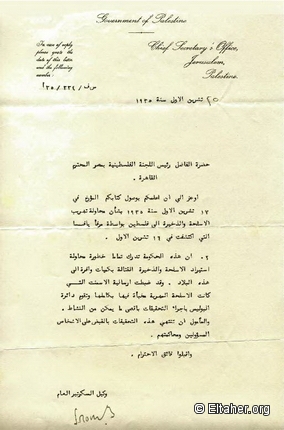 Government of Palestine
In case of reply
please quote the
date of this letter
and the following
number:
Chief Secretary's Office,
Jerusalem,
Palestine.
٢٥ تشرين الاول سنة ١٩٣٥
حضرة الفاضل رئيس اللجنة الفلسطينية بمصر المحترم
القاهرة .
اوعز الي ان اعلمكم بوصول كتابكم المؤرخ في
١٣ تشرين الاول سنة ١٩٣٥ بشأن محاولة تهريب
الاسلحة والذخيرة الى فلسطين بواسطة مرفأ يافا
التي اكتشفت في ١٦ تشرين الاول .
٢ . ان هذه الحكومة تدرك تماما خطورة محاولة
استيراد الاسلحة والذخيرة القتالة بكميات وافرة الى
هذه البلاد . وقد ضبطت ارسالية الاسمنت التي
كانت الاسلحة المهربة مخبأة فيها بكاملها وتقوم دائرة
البوليس باجراء التحقيقات باقصى ما يمكن من النشاط .
والمأمول ان تنتهي هذه التحقيقات بالقبض على الاشخاص
المسؤولين ومحاكمتهم .
واقبلوا فائق الاحترام .
وكيل السكرتير العام
© Eltaher.org